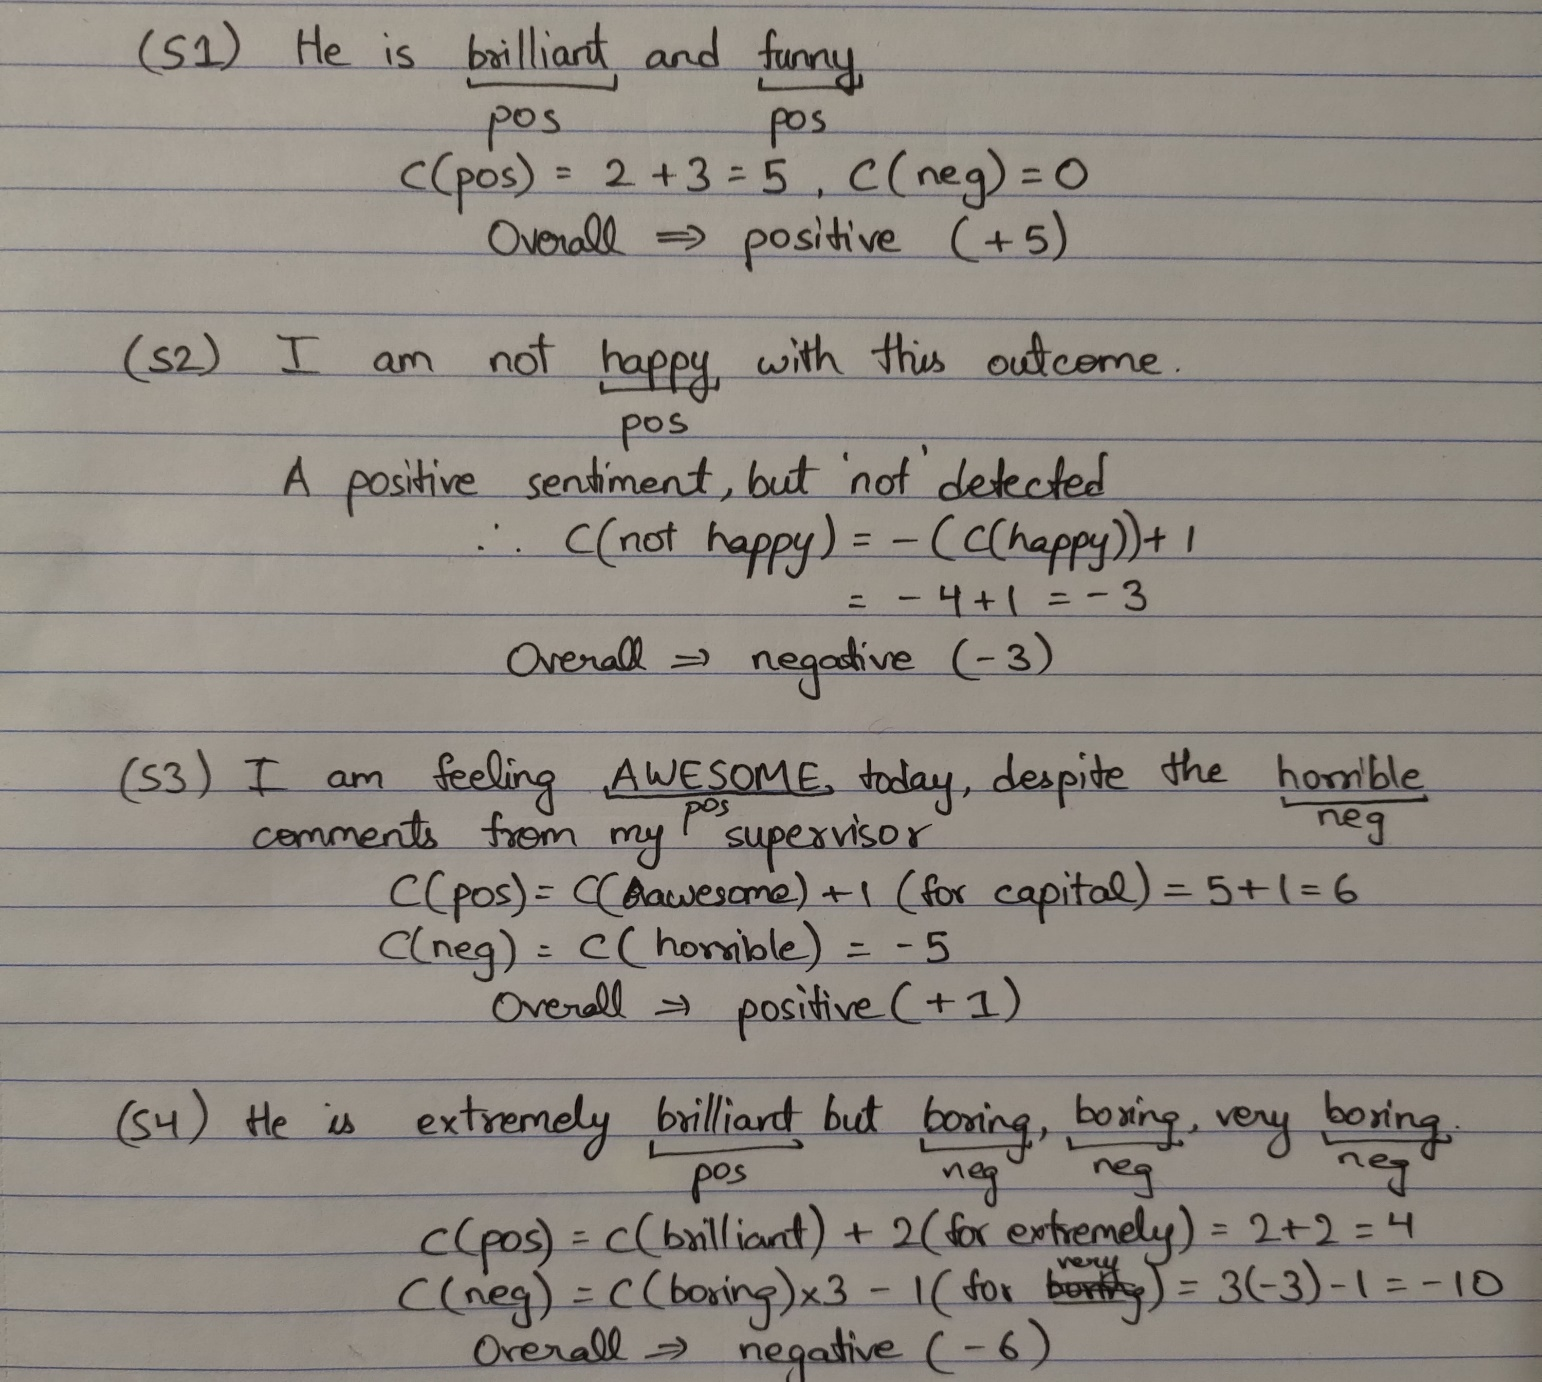 (S1) He is brilliant and funny
pos pos
C(pos) = 2 + 3 = 5, C(neg) = 0
Overall ⇒ positive (+5)
(S2) I am not happy with this outcome.
pos
A positive sentiment, but 'not' detected
∴ C(not happy) = -(C(happy)) + 1
= -4 + 1 = -3
Overall ⇒ negative (-3)
(S3) I am feeling AWESOME today, despite the horrible
pos neg
comments from my supervisor
C(pos) = C(awesome) + 1 (for capital) = 5 + 1 = 6
C(neg) = C(horrible) = -5
Overall ⇒ positive (+1)
(S4) He is extremely brilliant but boring, boring, very boring.
pos neg neg neg
C(pos) = C(brilliant) + 2 (for extremely) = 2 + 2 = 4
C(neg) = C(boring) x 3 - 1 (for very) = 3(-3) - 1 = -10
Overall ⇒ negative (-6)